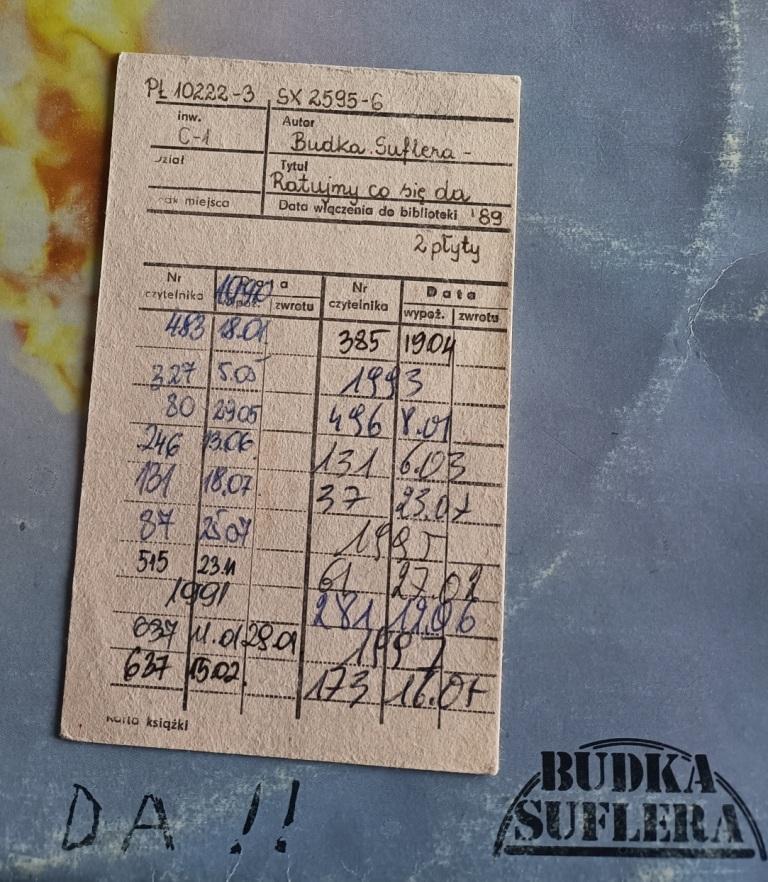 PŁ 10222-3 SX 2595-6
inw.
C-1
Autor
Budka Suflera -
dział
Tytuł
Ratujmy co się da
miejsca
Data włączenia do biblioteki '89
2 płyty
Nr czytelnika
wypoż. zwrotu
Nr czytelnika
Data
wypoż. zwrotu
483 18.01
327 5.05
80 29.05
246 13.06.
131 18.07.
87 25.07
515 23.11
1991
637 11.01 28.01
637 15.02.
385 19.04
1993
496 8.01
131 6.03
37 23.07
1995
61 27.02
281 12.06
1997
173 16.07
Karta książki
DA !!
BUDKA
SUFLERA